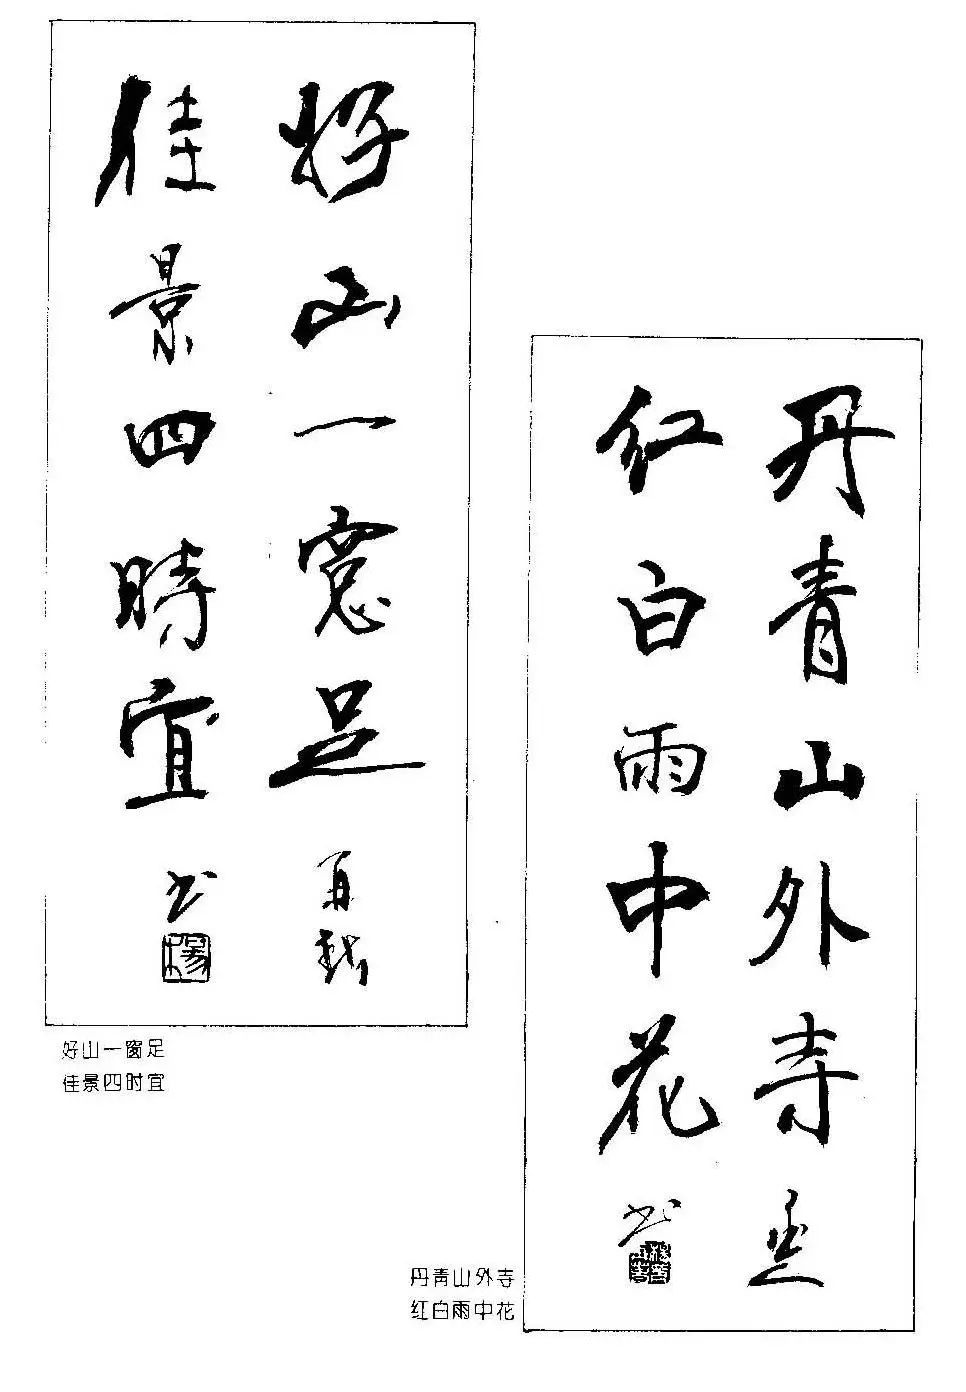 好山一窗足
佳景四時宜
书
好山一窗足
佳景四时宜
丹青山外寺
红白雨中花
书
丹青山外寺
红白雨中花